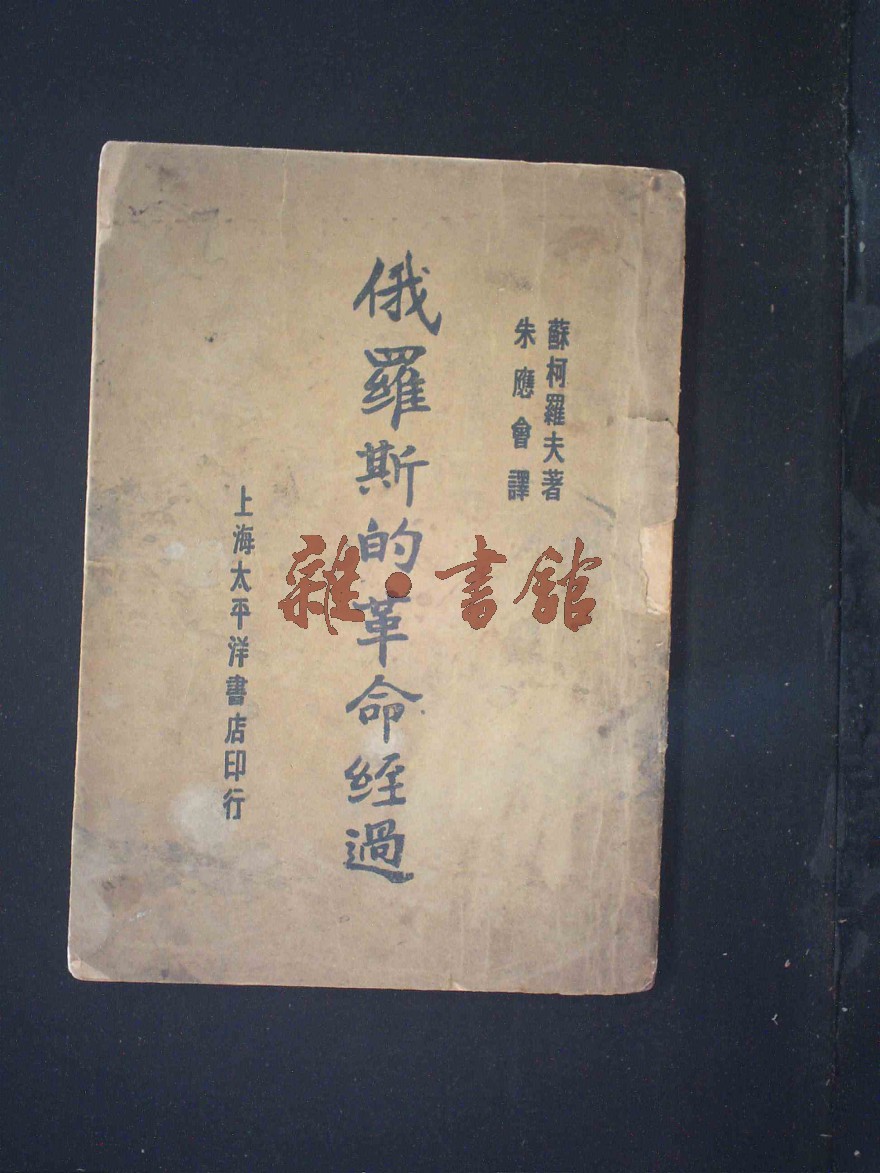 蘇柯羅夫著
朱應會譯
俄羅斯的革命經過
上海太平洋書店印行
雜·書館